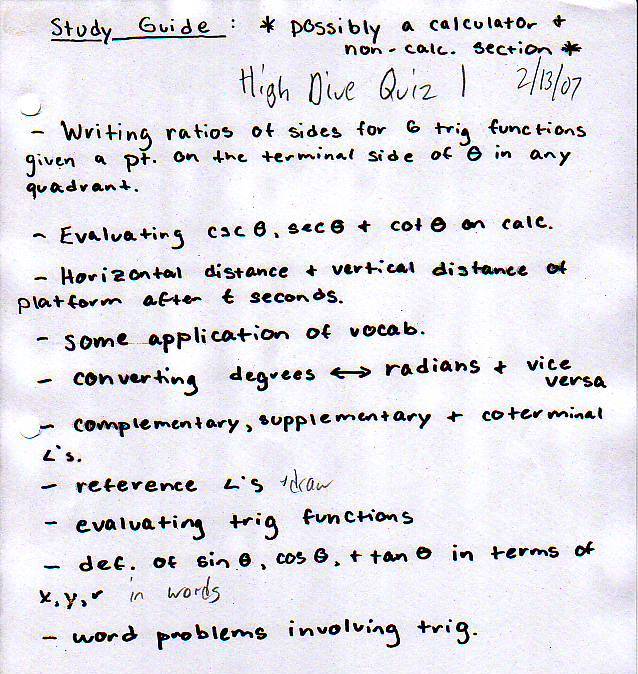 Study Guide : * possibly a calculator +
non-calc. section *
High Dive Quiz 1 2/13/07
- Writing ratios of sides for 6 trig functions
given a pt. on the terminal side of θ in any
quadrant.
- Evaluating csc θ, sec θ + cot θ on calc.
- Horizontal distance + vertical distance of
platform after t seconds.
- some application of vocab.
- converting degrees ↔ radians + vice
versa
- complementary, supplementary + coterminal
∠'s.
- reference ∠'s + draw
- evaluating trig functions
- def. of sin θ, cos θ, + tan θ in terms of
x, y, r in words
- word problems involving trig.